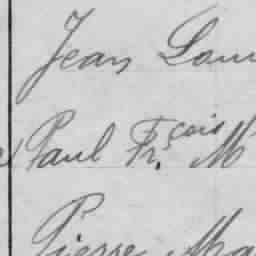 Jean Lou
Paul Fr.çois M
Pierre Ma